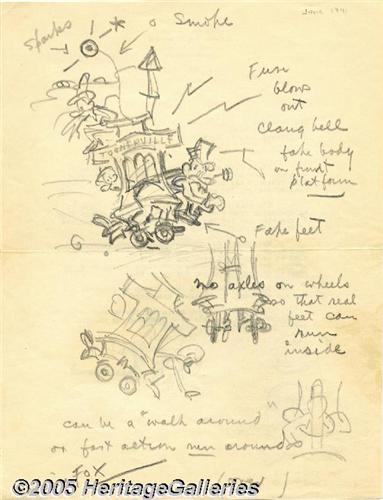 June 1941
Sparks
Smoke
Fuse
blows
out
Clang bell
fake body
on front
platform
TOONERVILLE
Fake feet
no axles on wheels
so that real
feet can
run
inside
can be a "walk around"
or fast action run around
Fox
©2005 HeritageGalleries